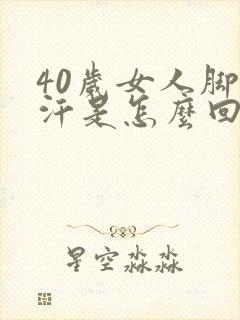 40歲女人脚
汗是怎麼回
星空淼淼